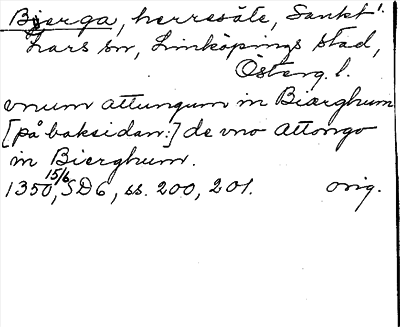 Bjerga, herresäte, Sankt
Lars sn, Linköpings stad,
Österg. l.
unum attungum in Biærghum
[på baksidan:] de vno attongo
in Bierghum.
1350 15/6, SD6, ss. 200, 201. orig.